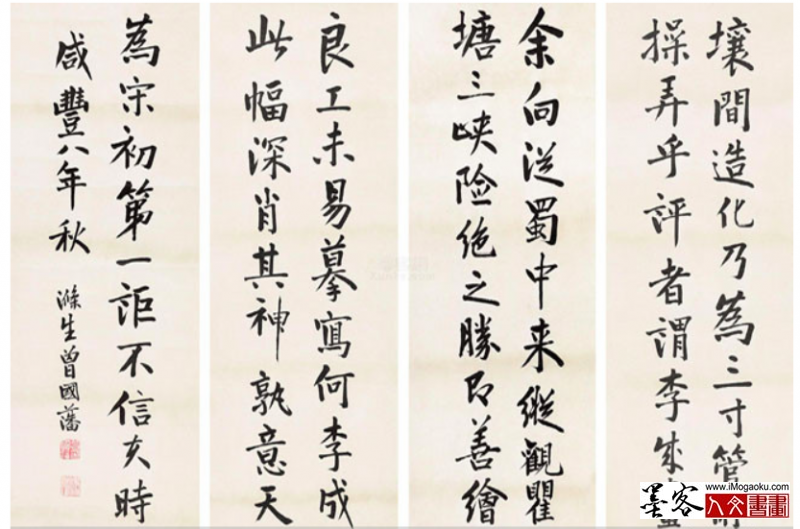 壤間造化乃為三寸管
操弄乎評者謂李成
余向從蜀中来縱觀瞿
塘三峽險絶之勝即善繪
良工未易摹寫何李成
此幅深肖其神孰意天
為宋初第一詎不信夫時
咸豐八年秋
滌生曾國藩
墨客
www.iMogaoku.com
人文書畫